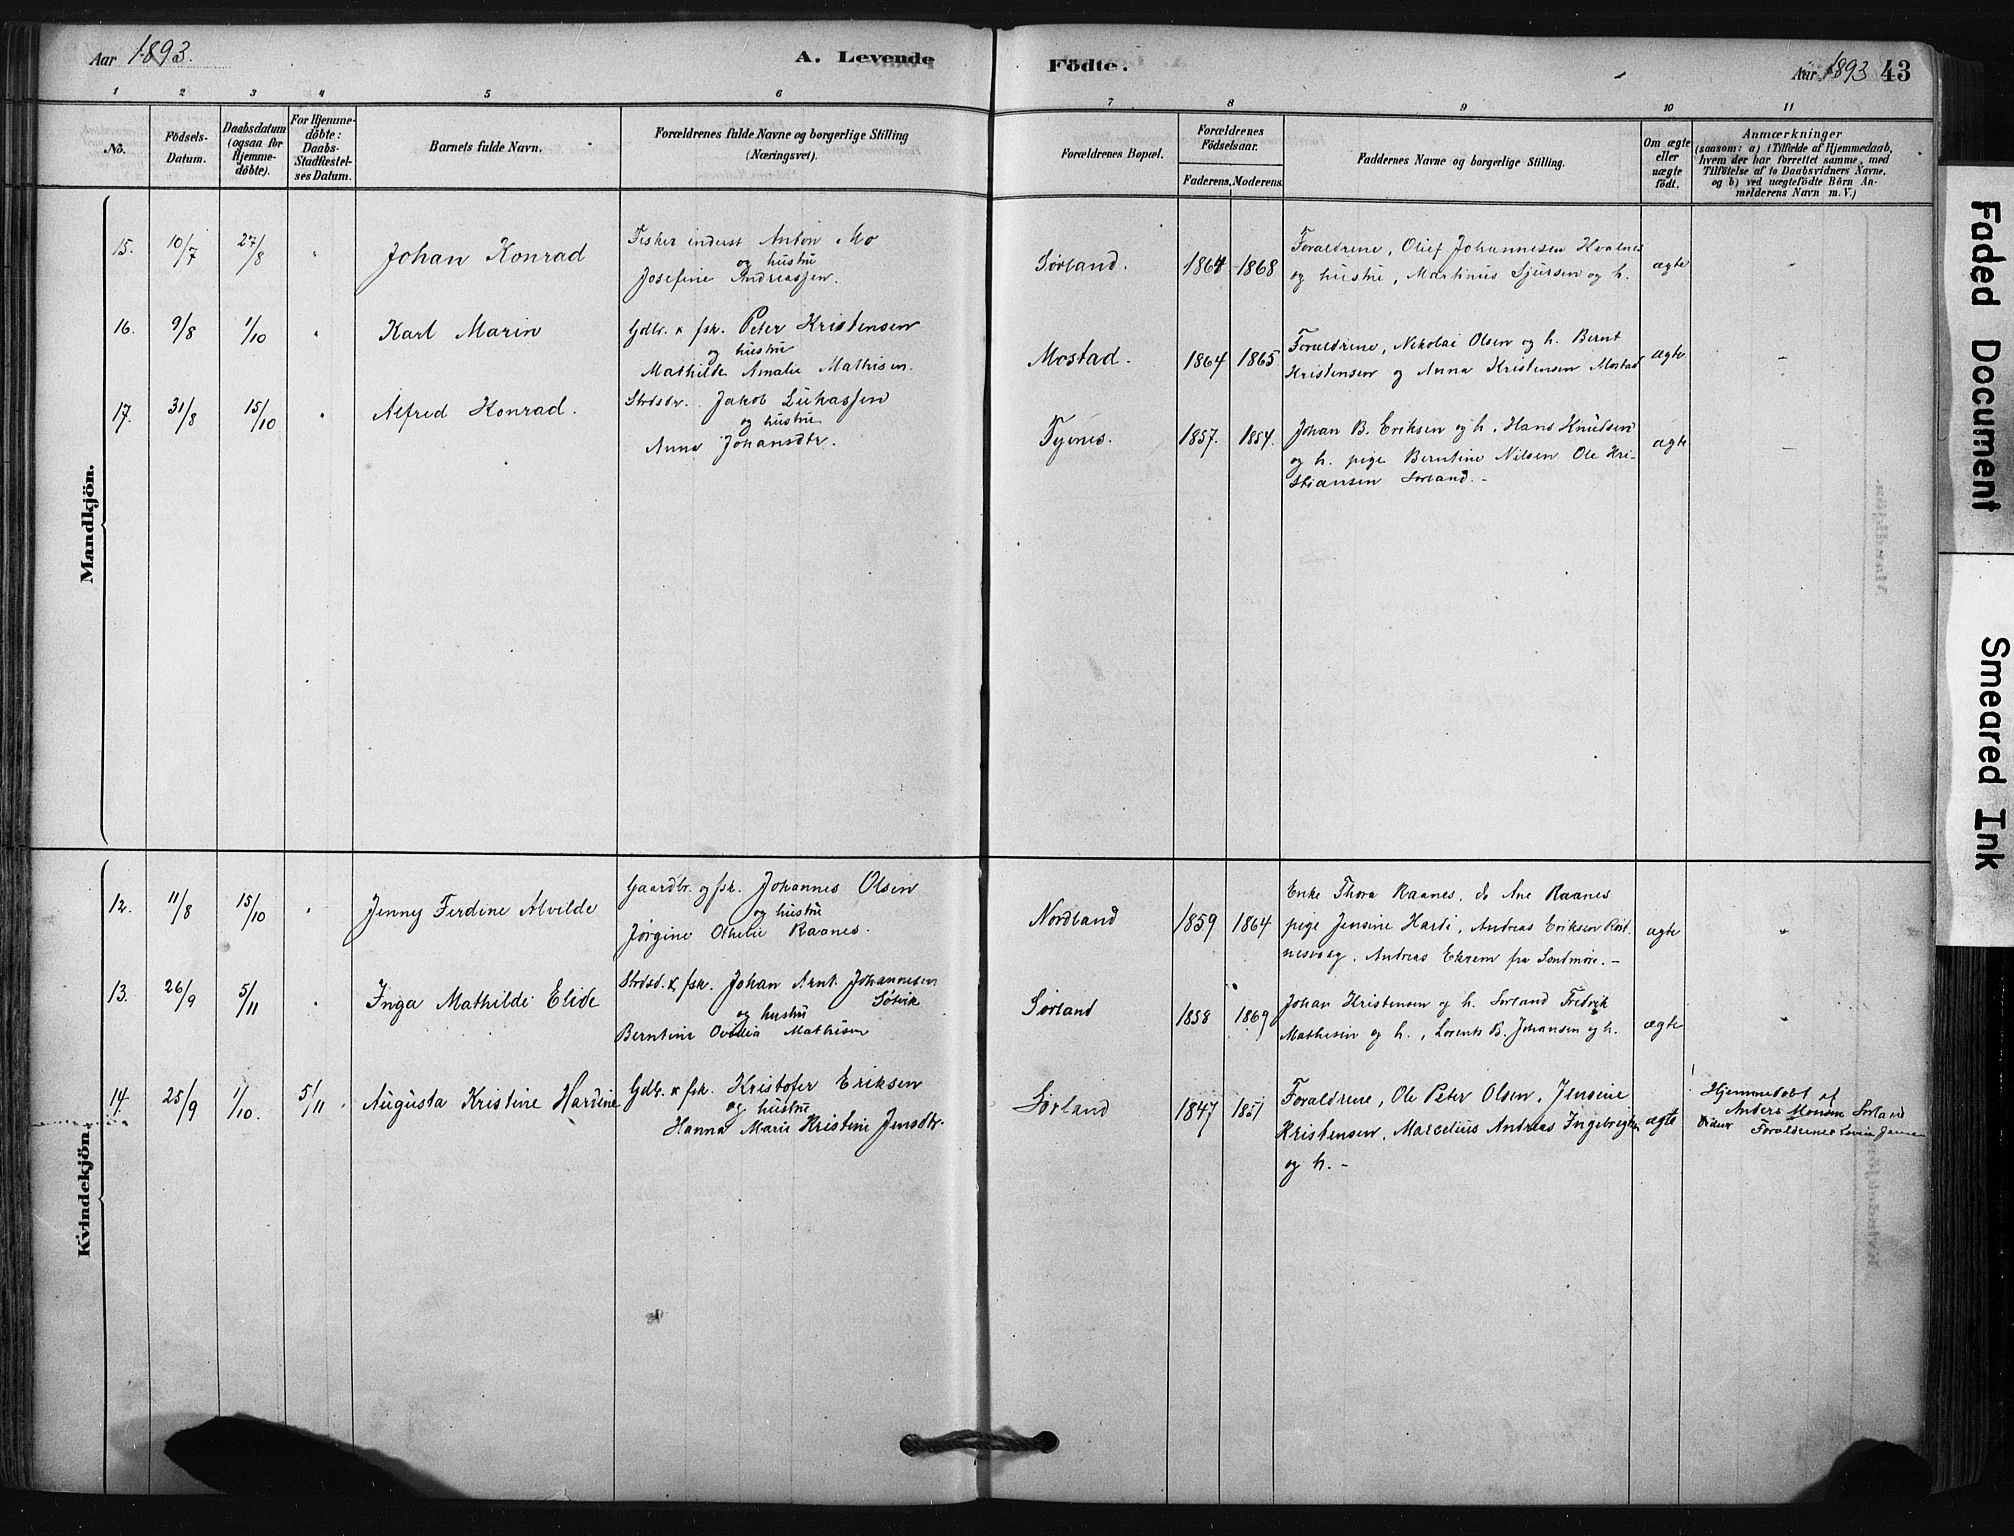 Aar 1893.
A. Levende
Födte.
Aar 1893 43
1 2 3 4 5 6 7 8 9 10 11
No.
Födsels-
Datum.
Daabsdatum
(ogsaa for
Hjemme-
döbte).
For Hjemme-
döbte:
Daabs-
Stadfæstel-
ses Datum.
Barnets fulde Navn.
Forældrenes fulde Navne og borgerlige Stilling
(Næringsvei).
Forældrenes Bopæl.
Forældrenes
Födselsaar.
Faderens. Moderens.
Faddernes Navne og borgerlige Stilling.
Om ægte
eller
uægte
födt.
Anmærkninger
(saasom: a) i Tilfælde af Hjemmedaab,
hvem der har forrettet samme, med
Tilföielse af to Daabsvidners Navne.
og b) ved uægtefödte Börn An-
melderens Navn m. V.)
Mandkjön.
15. 10/7 27/8 " Johan Konrad
Fisker inderst Anton Mo
og hustru
Josefine Andreassen.
Sørland. 1864 1868
Forældrene, Oluf Johannesen Kvalnes
og hustru, Martinus Sjursen og h.
ægte "
16. 9/8 1/10 " Karl Marin
Gdbr. & fsk. Peter Kristensen
og hustru
Mathilde Amalie Mathisen.
Mostad. 1864 1865
Forældrene, Nikolai Olsen og h. Bernt
Kristensen og Anna Kristensen Mostad
ægte "
17. 31/8 15/10 " Alfred Konrad.
Strdsdr. Jakob Lukassen
og hustru
Anna Johansdtr.
Tyvnes. 1857. 1854.
Johan B. Eriksen og h. Hans Knudsen
og h. pige Berntine Nilsen Ole Kri-
stiansen Sørland. -
ægte -
Kvindekjön.
12. 11/8 15/10 " Jenny Ferdine Alvilde
Gaardbr. og fsk. Johannes Olsen
og hustru
Jørgine Othelie Raanes.
Nordland 1859 1864
Enke Thora Raanes, do Ane Raanes
pige Jensine Hardi, Andreas Eriksen Røst-
nesvaag, Andreas Ekrem fra Søndmøre. -
ægte "
13. 26/9 5/11 " Inga Mathilde Elide
Strdsd. & fsk. Johan Arnt Johannesen
Solvik
og hustru
Berntine Ovedia Mathisen
Sørland 1858 1869
Johan Kristensen og h. Sørland Fredrik
Mathesen og h., Lorents B. Johansen og h.
ægte "
14. 25/9 1/10. 5/11 Augusta Kristine Hardine
Gdbr. & fsk. Kristofer Eriksen
og hustru
Hanna Marie Kristine Jensdtr.
Sørland 1847 1851
Forældrene, Ole Peter Olsen, Jensine
Kristensen, Marcelius Andreas Ingebrigtsen
og h. -
ægte
Hjemmedøbt af
Anders Monsen Sørland
Vidner Forældrene Jensen
Faded Document
Smeared Ink